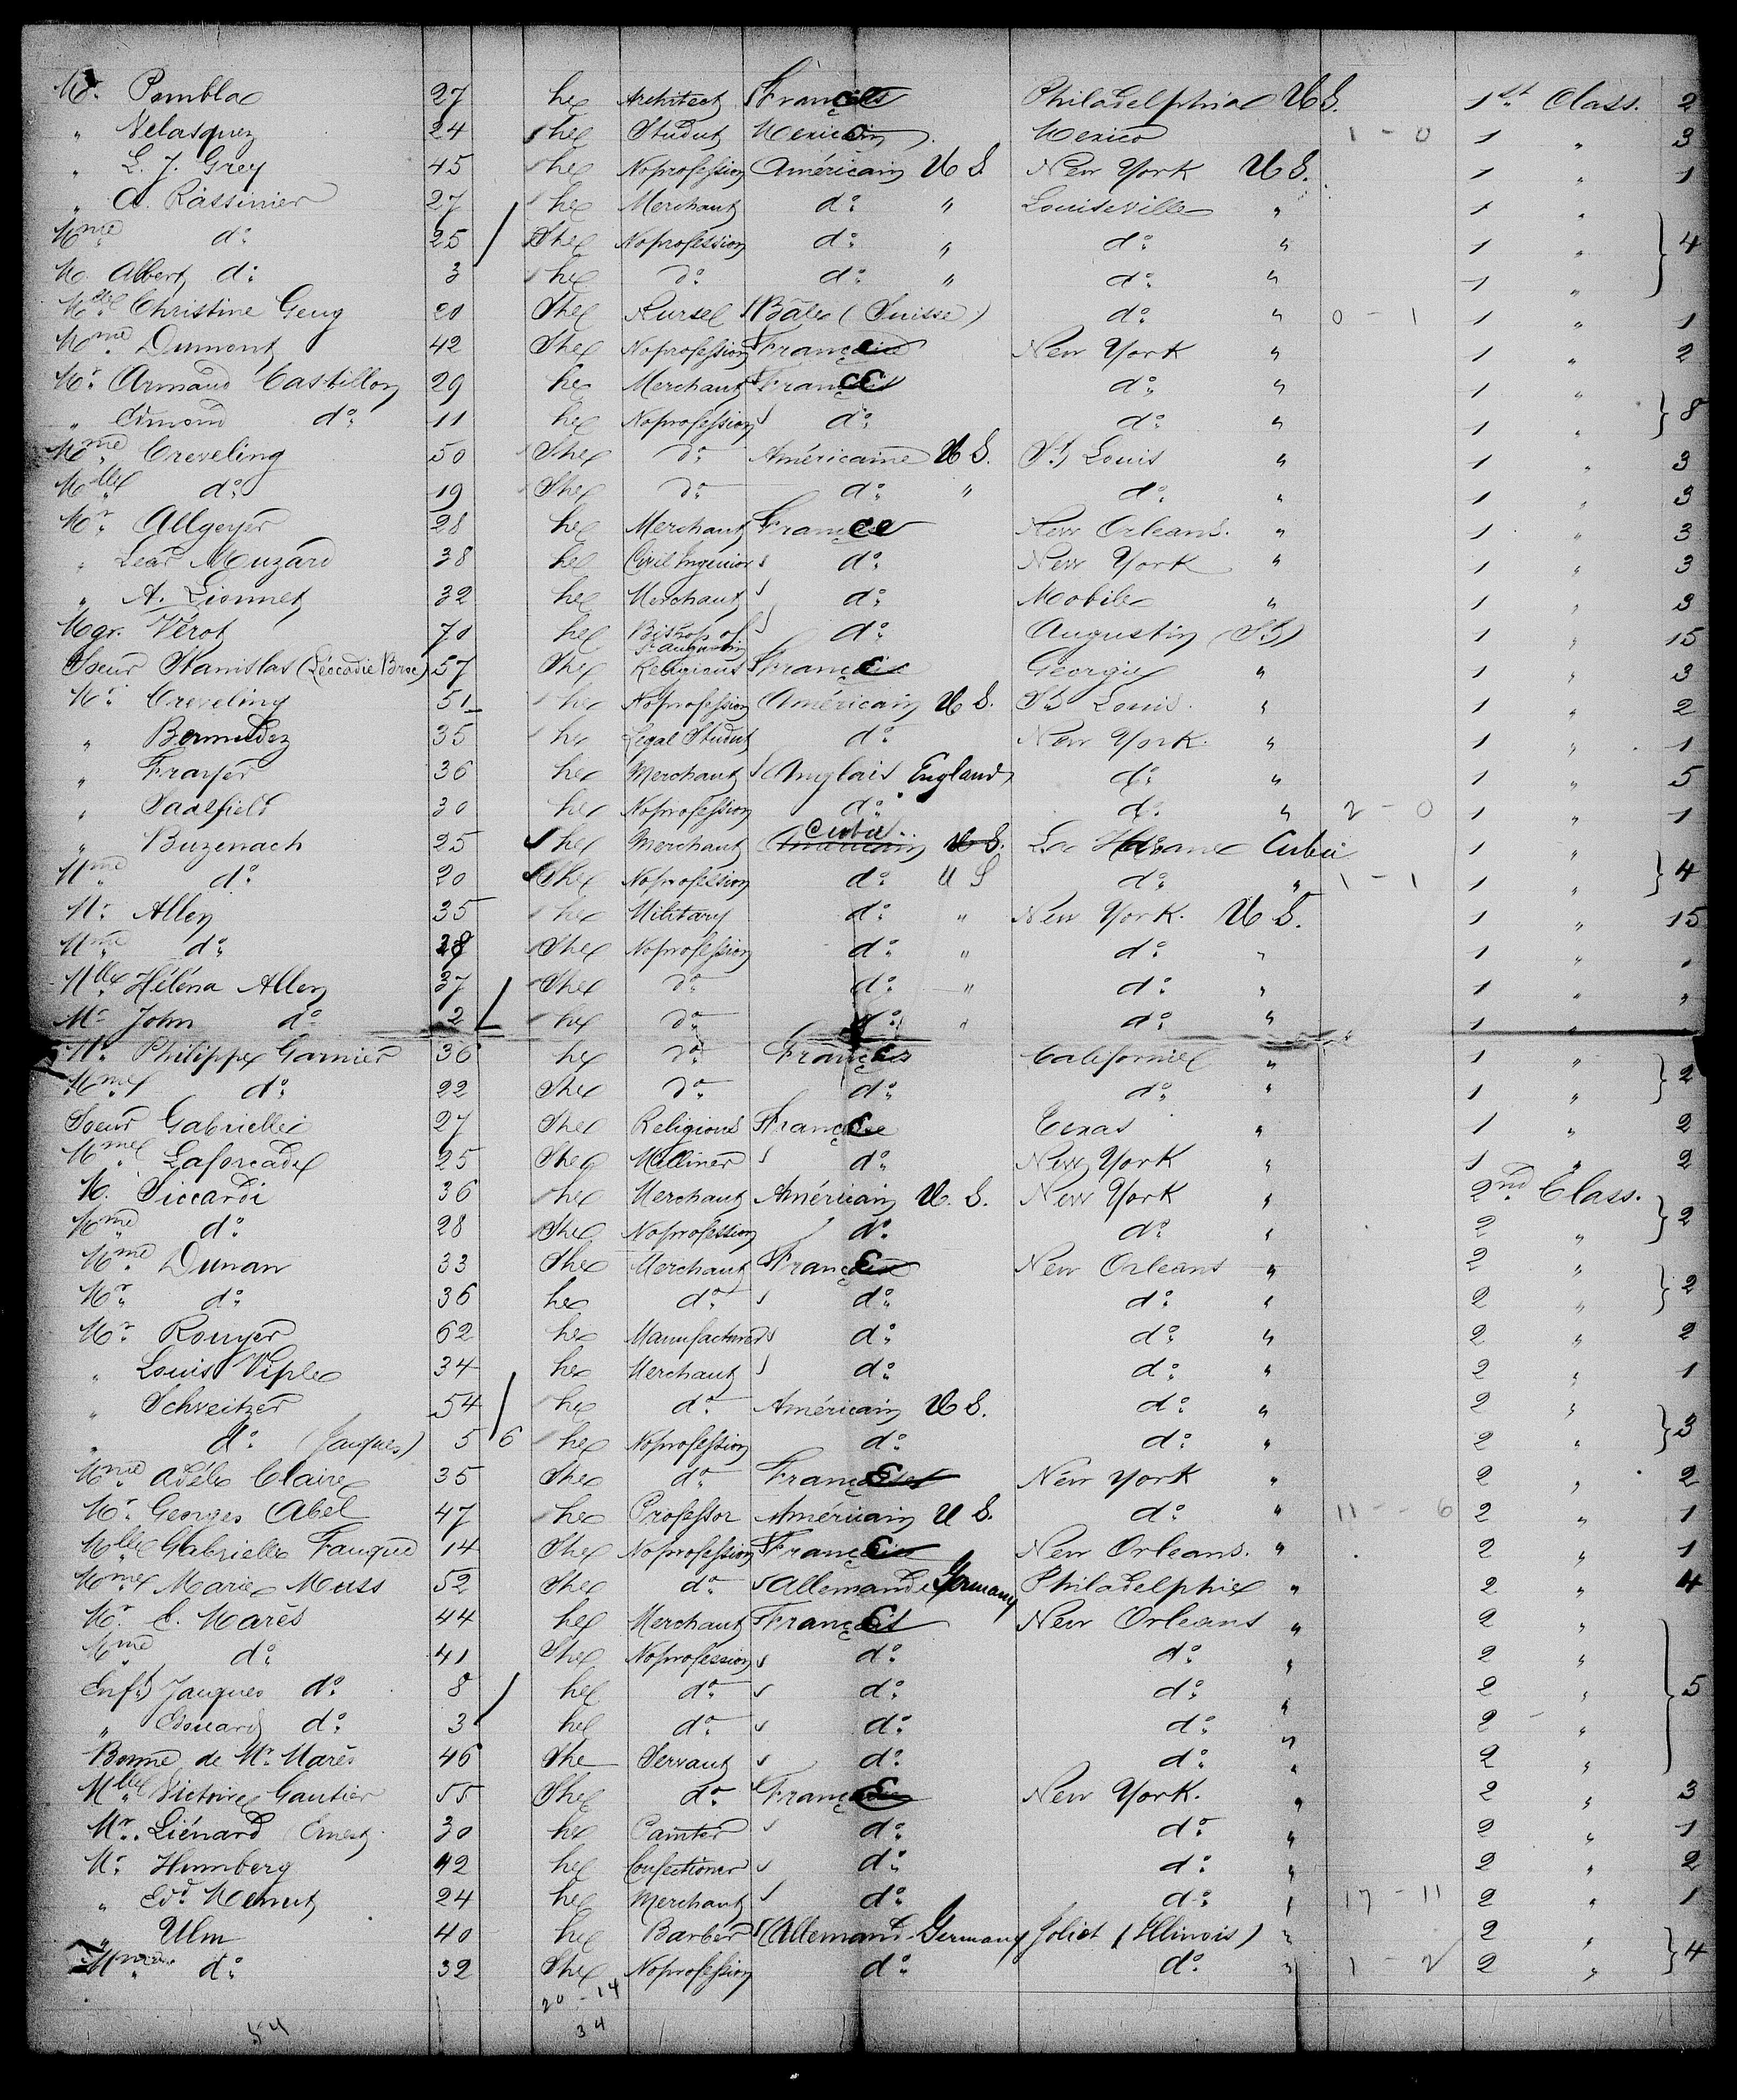 Mr. Pombla 27 he Architect France Philadelphia U S. 1st Class. 2
" Velasquez 24 he Studut Mexico Mexico 1 - 0 1 " 3
" L. J. Grey 45 he No profession Américain U S. New York U S. 1 " 1
" A. Rassinier 27 he Merchant do " Louiseville " 1 "
Mme do 25 She No profession do " do " 1 " 4
M. Albert do 3 he do do " do " 1 "
Melle Christine Geng 20 She Nurse Bâle (Suisse) do " 0 - 1 1 " 1
Mme Dumont 42 She No profession France New York " 1 " 2
Mr. Armand Castillon 29 he Merchant France do " 1 "
" Edmond do 11 he No profession do do " 1 " 8
Mme Creveling 50 She do Américaine U S. St Louis " 1 " 3
Mlle do 19 She do do " do " 1 " 3
Mr. Allgeyer 28 he Merchant France New Orleans. " 1 " 3
" Lear Muzard 38 he Civil Ingenior do New York " 1 " 3
" A. Lionnet 32 he Merchant do Mobile " 1 " 3
Mgr. Vérot 70 he Bishop of St Augustin do Augustin (St) 1 " 15
Soeur Stanislas (Léocadie Broc) 57 She Religious France Georgie " 1 " 3
Mr. Creveling 51 he No profession Américain U S. St Louis. " 1 " 2
" Bermudez 35 he Legal Studut do New York. " 1 " 1
" Frayer 36 he Merchant Anglais England do " 1 " 5
" Saalfield 30 he No profession do do " 2 - 0 1 " 1
" Buzenach 25 he Merchant Cuba Américain U S. La Havane Cuba 1 "
Mme do 20 She No profession do U S do " 1 - 1 1 " 4
Mr. Allen 35 he Military do " New York. U S. 1 " 15
Mme do 28 She No profession do " do " 1 " "
Mlle Héléna Allen 37 She do do " do " 1 " "
Mr. John do 2 he do do " do " 1 " "
Mr. Philippe Garnier 36 he do France Californie " 1 "
Mme do 22 She do do do " 1 " 2
Soeur Gabrielle 27 She Religious France Texas " 1 " 2
Mme Laforcade 25 She Milliner do New York " 1 " 2
M. Siccardi 36 he Merchant Américain U. S. New York " 2nd Class.
Mme do 28 She No profession do do " 2 " 2
Mme Dunan 33 She Merchant France New Orleans " 2 "
Mr. do 36 he do do do " 2 " 2
Mr. Rouyer 62 he Manufacturer do do " 2 " 2
" Louis Viple 34 he Merchant do do " 2 " 1
" Schveitzer 54 he do Américain U S. do " 2 "
" do (Jacques) 5 6 he No profession do do " 2 " 3
Mme Adèle Claire 35 She do France New York " 2 " 2
Mr. Georges Abel 47 he Professor Américain U S. do " 11 - 6 2 " 1
Mlle Gabrielle Fauque 14 She No profession France New Orleans. " 2 " 1
Mme Marie Muss 52 She do Allemande Germany Philadelphie " 2 " 4
Mr. E. Marès 44 he Merchant France New Orleans " 2 "
Mme do 41 She No profession do do " 2 "
Enft Jacques do 8 he do do do " 2 " 5
" Edouard do 3 he do do do " 2 "
Bonne de Mr. Marès 46 She Servant do do " 2 "
Mlle Victoire Gautier 55 She do France New York. " 2 " 3
Mr. Liénard Ernest 30 he Painter do do " 2 " 1
Mr. Humberg 42 he Confectioner do do " 2 " 2
" Edd 24 he Merchant do do " 17 - 11 2 " 1
" Ulm 40 he Barber Allemand Germany Joliet (Illinois) " 2 "
Mme do 32 She No profession do do " 1 - 2 2 " 4
20 - 14
54 34